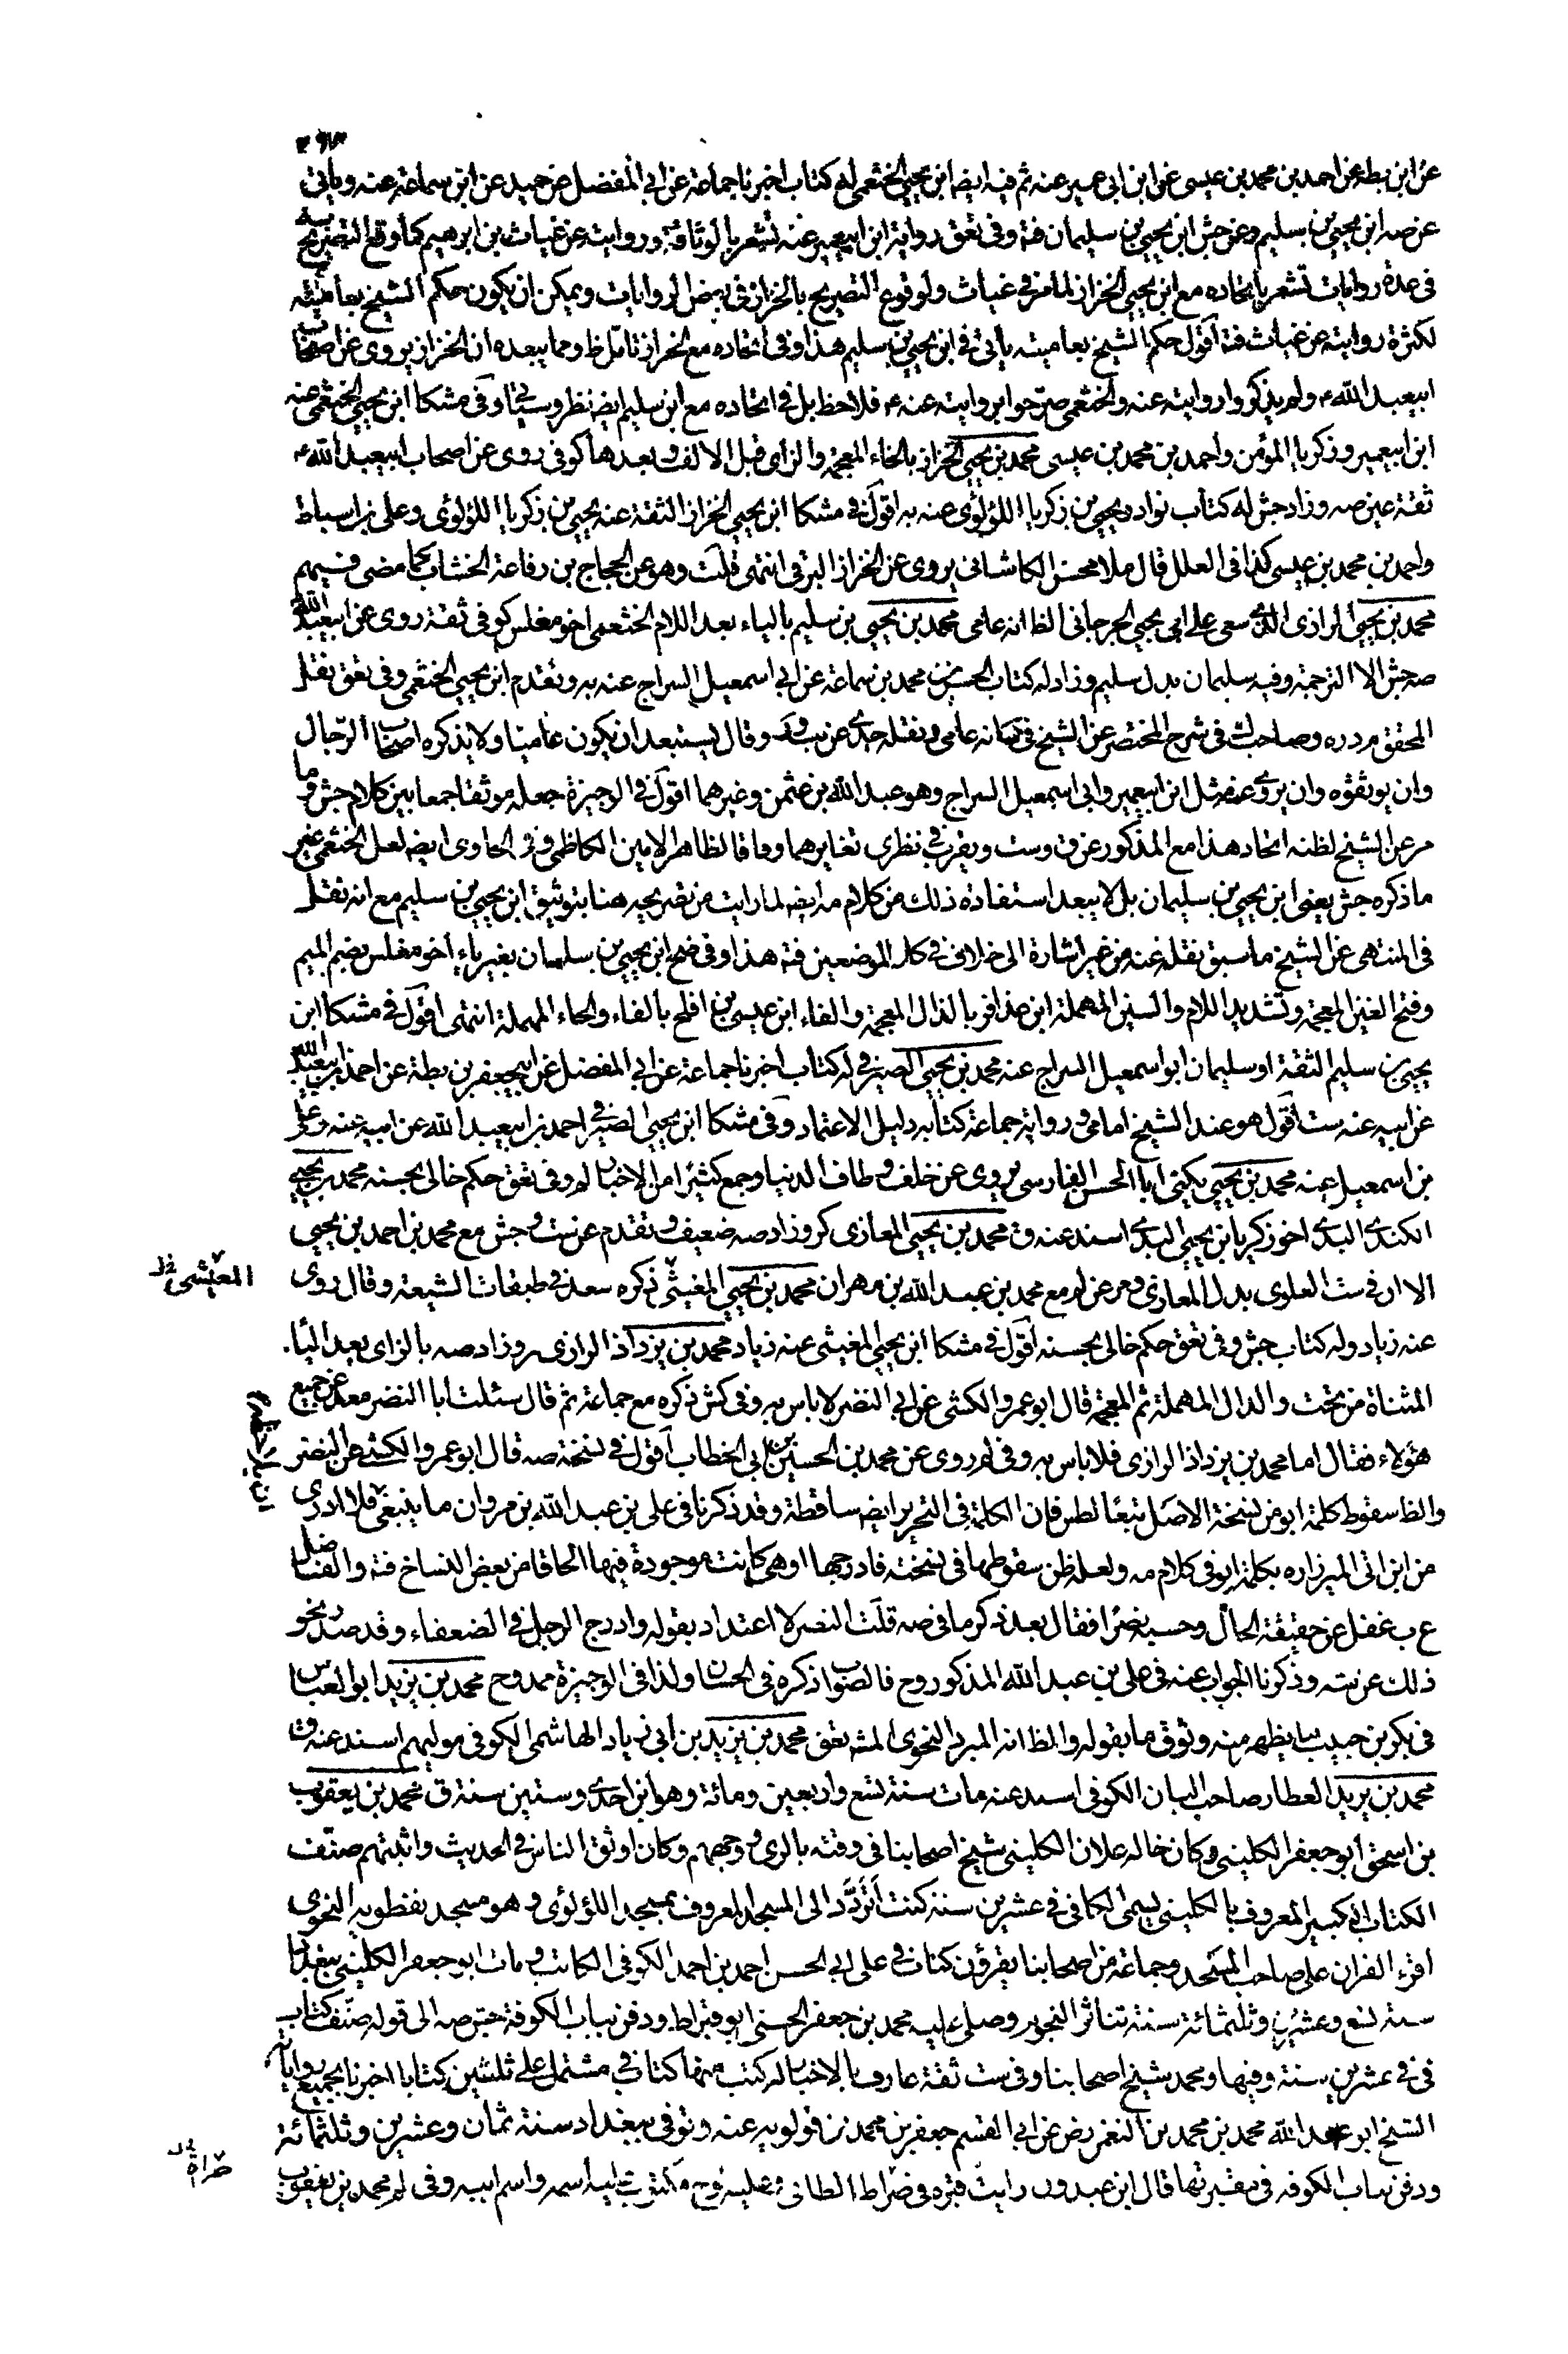 ٢٩٣
عن ابن بطه عن احمد بن محمد بن عيسى عن ابن ابي عمير عنه ثم فيه ايضه ابن يحيى الخثعمي له كتاب اخبرنا جماعة عن ابي المفضل عن حميد عن ابن سماعة عنه وياتي
عن صه ابن يحيى بن سليم وعن جش ابن يحيى بن سليمان فته وفي تعق رواية ابن ابيعمير عنه تشعر بالوثاقة وروايته عن غياث بن ابرهيم كما وقع التصريح به
في عدة روايات تشعر باتحاده مع ابن يحيى الخزاز لما مر في غياث ولوقوع التصريح بالخزاز في بعض الروايات ويمكن ان يكون حكم الشيخ بعاميته
لكثرة روايته عن غياث فته اقول حكم الشيخ بعاميته ياتي في ابن يحيى بن سليم هذا وفي اتحاده مع الخزاز تامل ظ ومما يبعده ان الخزاز يروي عن اصحاب
ابيعبد الله ع ولم يذكروا روايته عنه والخثعمي صرحوا بروايته عنه ع فلاحظ بل في اتحاده مع ابن سليم ايضه نظر وسياتي وفي مشكا ابن يحيى الخثعمي عنه
ابن ابيعمير وزكريا المؤمن واحمد بن محمد بن عيسى محمد بن يحيى الخزاز بالخاء المعجمة والزاى قبل الالف وبعدها كوفي روى عن اصحاب ابيعبد الله ع
ثقة عين صه وزاد جش له كتاب نوادر يحيى بن زكريا اللؤلؤى عنه به اقول في مشكا ابن يحيى الخزاز الثقة عنه يحيى بن زكريا اللؤلؤى وعلى بن اسباط
واحمد بن محمد بن عيسى كذا في العلل قال ملا محسن الكاشاني يروى عن الخزاز البرقي انتهى قلت وهو عن الحجاج بن رفاعة الخشاب كما مضى فيهم
محمد بن يحيى الرازى الذى سعى على ابي يحيى الجرجاني الظ انه عامي محمد بن يحيى بن سليم بالياء بعد اللام الخثعمي اخو مغلس كوفي ثقة روى عن ابيعبد الله
صه جش الا الترجمة وفيه سليمان بدل سليم وزاد له كتاب الحسن بن محمد بن سماعة عن ابي اسمعيل السراج عنه به وتقدم ابن يحيى الخثعمي وفي تعق نقل
المحقق مدره وصاحب في شرح المختصر عن الشيخ في انه عامي ونقله جدى عن يب و وقال يستبعد ان يكون عاميا ولا يذكره اصحاب الرجال
وان يوثقوه وان يروى عنه مثل ابن ابيعمير وابي اسمعيل السراج وهو عبد الله بن عثمن وغيرهما اقول في الوجيزة جعله موثقا جمعا بين كلام جش وما
مر عن الشيخ لظنه اتحاد هذا مع المذكور عن ق وست ويقرب في نظرى تغايرهما وفاقا لظاهر الامين الكاظمي وفي الحاوى ايضه لعل الخثعمي غير
ما ذكره جش يعني ابن يحيى بن سليمان بل لا يبعد استفادة ذلك من كلام مه ايضه لما رايت من تصريحه هنا بتوثيق ابن يحيى بن سليم مع انه نقل
في المنتهى عن الشيخ ما سبق نقله عنه من غير اشارة الى خلاف في كلا الموضعين فته هذا وفي ضح ابن يحيى بن سلمان بغير ياء اخو مغلس بضم الميم
وفتح الغين المعجمة وتشديد اللام والسين المهملة ابن عذافر بالذال المعجمة والفاء ابن عيسى بن افلح بالفاء والحاء المهملة انتهى اقول في مشكا ابن
يحيى بن سليم الثقة او سليمان ابو اسمعيل السراج عنه محمد بن يحيى الصيرفي له كتاب اخبرنا جماعة عن ابي المفضل عن ابيجعفر بن بطة عن احمد بن ابيعبد الله
عن ابيه عنه ست اقول هو عند الشيخ امامي ورواية جماعة كتابه دليل الاعتماد وفي مشكا ابن يحيى الصيرفي احمد بن ابيعبد الله عن ابيه عنه وعلى
بن اسمعيل عنه محمد بن يحيى يكنى ابا الحسن الفارسي يروى عن خلف وطاف الدنيا وجمع كثيرا من الاخبار لم وفي تعق حكم خالى بحسنه محمد بن يحيى
الكندى البدى اخو زكريا بن يحيى البدى اسند عنه ق محمد بن يحيى المعاذى كر وزاد صه ضعيف وتقدم عن ست وجش مع محمد بن احمد بن يحيى
الا ان في ست العلوى بدل المعاذى ومر عن لم مع محمد بن عبد الله بن مهران محمد بن يحيى المغيثى ذكره سعد في طبقات الشيعة وقال روى
عنه زياد وله كتاب جش وفي تعق حكم خالى بحسنه اقول في مشكا ابن يحيى المغيثى عنه زياد محمد بن يزداذ الرازى ر وزاد صه بالزاى بعد الياء
المثناة من تحت والدال المهملة ثم المعجمة قال ابو عمرو الكشى عن ابي النضر لا باس به وفي كش ذكره مع جماعة ثم قال سئلت ابا النضر عن جميع
هؤلاء فقال اما محمد بن يزداذ الرازى فلا باس به وفي لم روى عن محمد بن الحسين بن ابي الخطاب اقول في نسخة صه قال ابو عمرو الكشى عن النضر
والظ سقوط كلمة ابو من نسخة الاصل تبعا لطس فان الكلمة في التحرير ايضه ساقطة وقد ذكرنا في على بن عبد الله بن مروان ما ينبغى فلا ادرى
من اين اتى الميرزا ره بكلمة ابو في كلام مه ولعله ظن سقوطها في نسخته فادرجها او هي كانت موجودة فيها الحاقا من بعض النساخ فته والفاضل
ع ب غفل عن حقيقة الحال وحسبه نضرا فقال بعد ذكر ما في صه قلت النضر لا اعتداد بقوله وادرج الرجل في الضعفاء وقد صدر نحو
ذلك عن ته وذكرنا الجواب عنه في على بن عبد الله المذكور وح فالصواب ذكره في الحسان ولذا في الوجيزة ممدوح محمد بن يزيد ابو العباس
في بكر بن حبيب ما يظهر منه وثوق ما بقوله والظ انه المبرد النحوى المشه تعق محمد بن يزيد بن ابي زياد الهاشمي الكوفي موليهم اسند عنه ق
محمد بن يزيد العطار صاحب البان الكوفي اسند عنه مات سنة تسع واربعين ومائة وهو ابن احدى وستين سنة ق محمد بن يعقوب
بن اسحق ابو جعفر الكليني وكان خاله علان الكليني شيخ اصحابنا في وقته بالرى ووجههم وكان اوثق الناس في الحديث واثبتهم صنف
الكتاب الكبير المعروف بالكليني يسمى الكافي في عشرين سنة كنت اتردد الى المسجد المعروف بمسجد اللؤلؤى وهو مسجد نفطويه النحوى
اقرء القران على صاحب المسجد وجماعة من اصحابنا يقرؤن كتاب في على ابي الحسن احمد بن احمد الكوفي الكاتب ومات ابو جعفر الكليني ببغداد
سنة تسع وعشرين وثلثمائة سنة تناثر النجوم وصلى عليه محمد بن جعفر الحسني ابو قيراط ودفن بباب الكوفة جش صه الى قوله صنف كتاب
في في عشرين سنة وفيها ومحمد شيخ اصحابنا وفي ست ثقة عارف بالاخبار له كتب منها كتاب في مشتمل على ثلثين كتابا اخبرنا بجميع رواياته
الشيخ ابو عبد الله محمد بن محمد بن النعمن رض عن ابي القسم جعفر بن محمد بن قولويه عنه وتوفي ببغداد سنة ثمان وعشرين وثلثمائة
ودفن بباب الكوفه في مقبرتها قال ابن عبدون رايت قبره في صراط الطائي وعليه لوح مكتوب عليه اسمه واسم ابيه وفي لم محمد بن يعقوب
العيشى خ ل
صراة خ ل